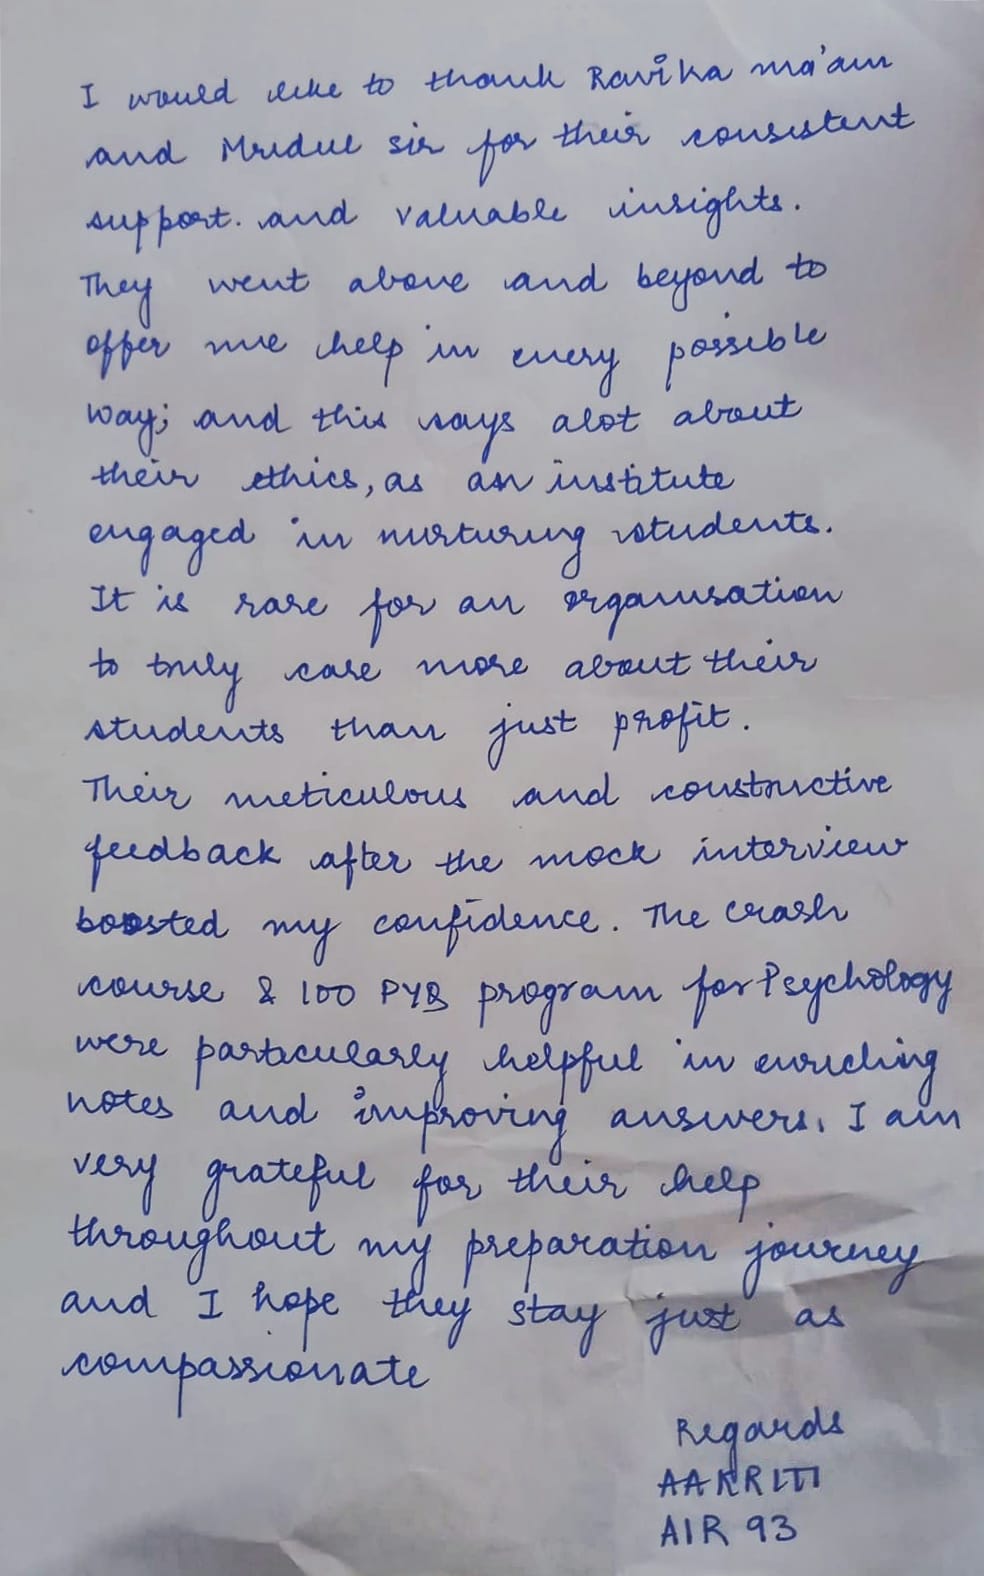 I would like to thank Ravika ma'am
and Mridul sir for their consistent
support. and valuable insights.
They went above and beyond to
offer me help in every possible
way; and this says alot about
their ethics, as an institute
engaged in nurturing students.
It is rare for an organisation
to truly care more about their
students than just profit.
Their meticulous and constructive
feedback after the mock interview
boosted my confidence. The crash
course & 100 PYQ program for Psychology
were particularly helpful in enriching
notes and improving answers. I am
very grateful for their help
throughout my preparation journey
and I hope they stay just as
compassionate
Regards
AAKRITI
AIR 93